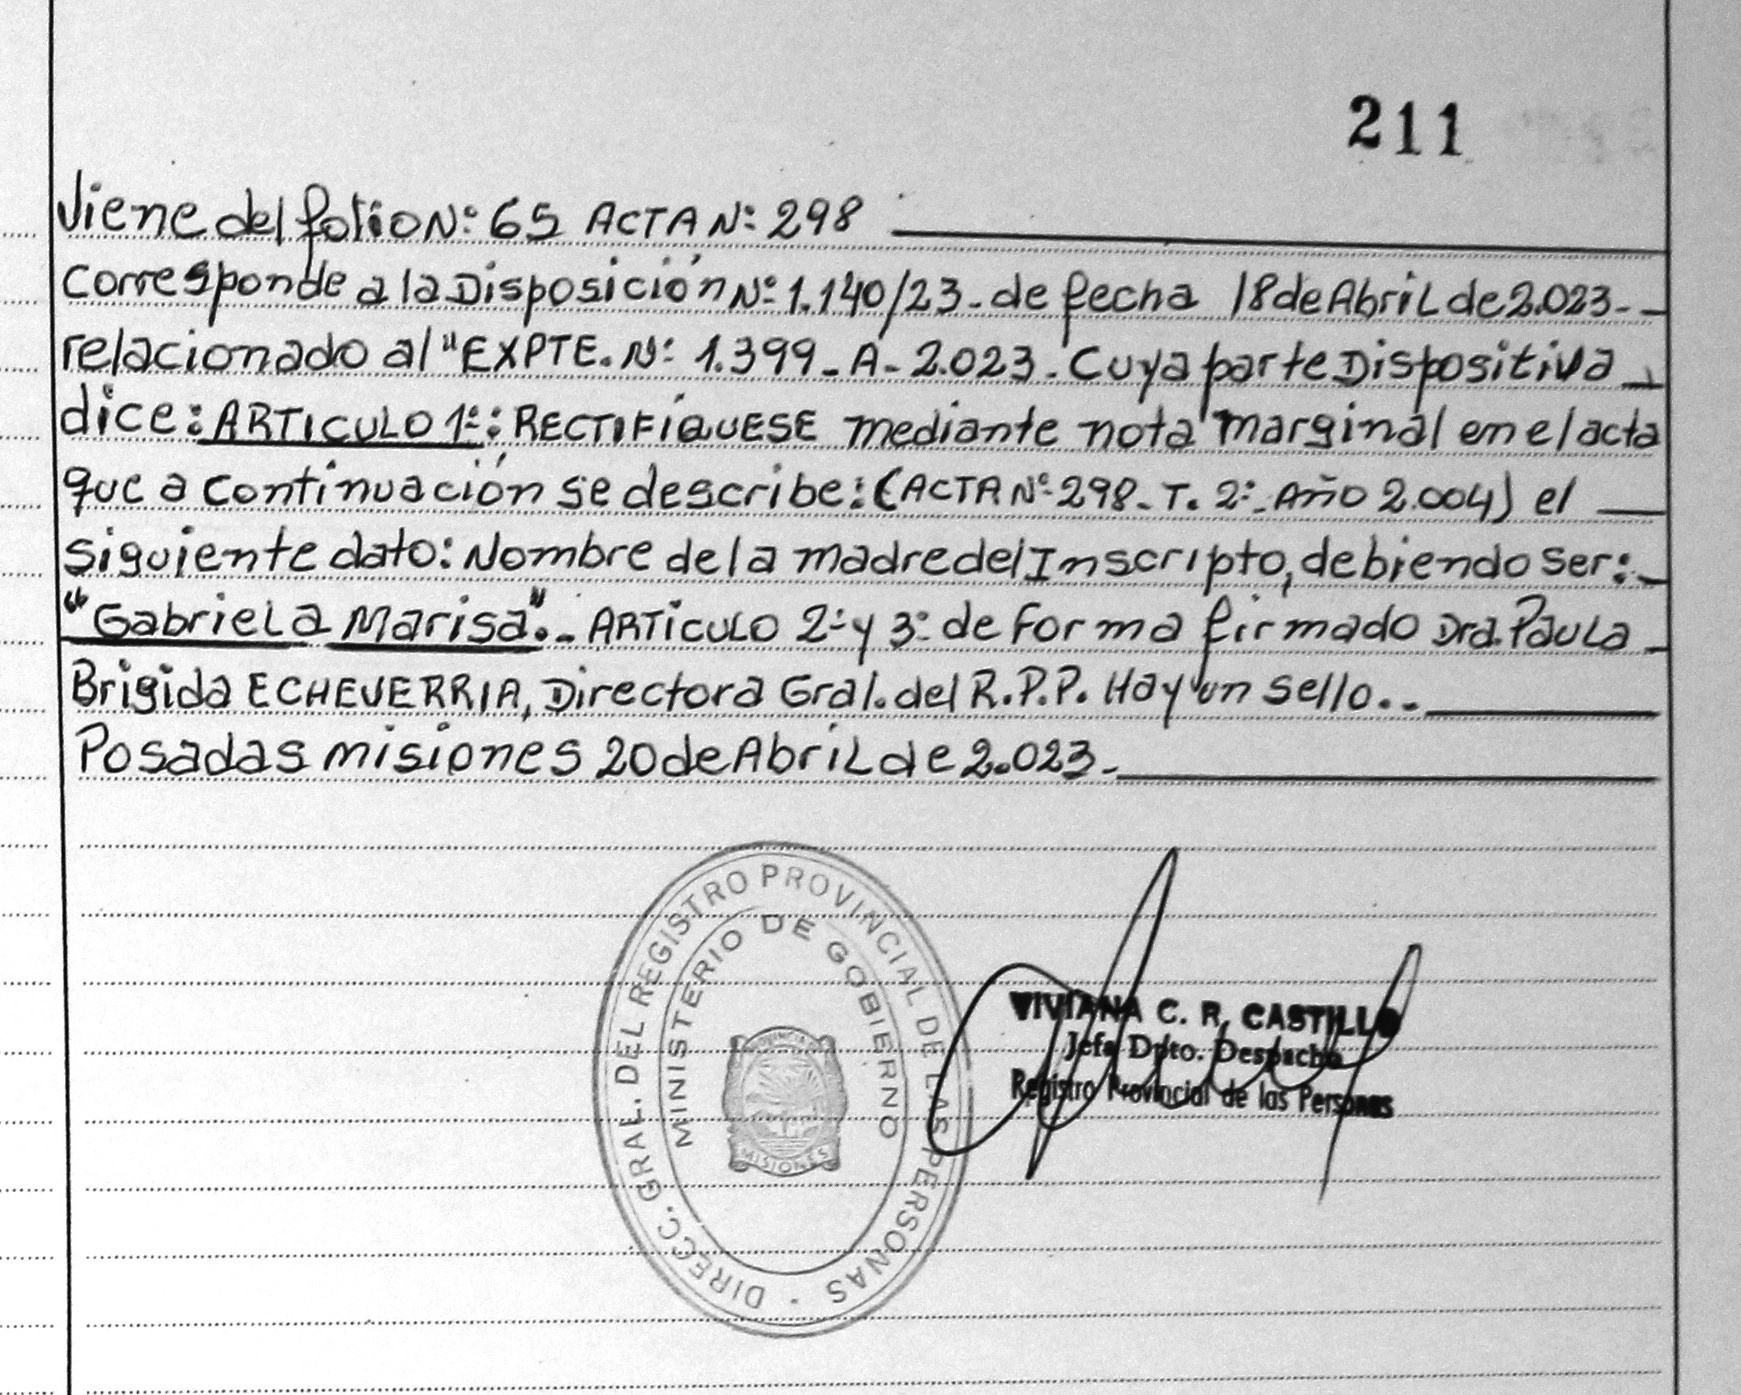 211
Viene del folio Nº: 65 ACTA Nº: 298
Corresponde a la Disposición Nº 1.140/23- de fecha 18 de Abril de 2.023--
relacionado al "EXPTE. Nº: 1.399-A-2.023. Cuya parte Dispositiva
dice: ARTICULO 1º: RECTIFÍQUESE mediante nota marginal en el acta
que a continuación se describe: (ACTA Nº 298- T. 2º- Año 2.004) el
siguiente dato: Nombre de la madre del Inscripto, debiendo ser:-
"Gabriela Marisa".- ARTICULO 2º y 3º de forma firmado Dra. Paula
Brigida ECHEVERRIA, Directora Gral. del R.P.P. Hay un sello.-
Posadas misiones 20 de Abril de 2.023-
DIRECC. GRAL. DEL REGISTRO PROVINCIAL DE LAS PERSONAS
MINISTERIO DE GOBIERNO
MISIONES
VIVIANA C. R. CASTILLO
Jefa Dpto. Despacho
Registro Provincial de las Personas